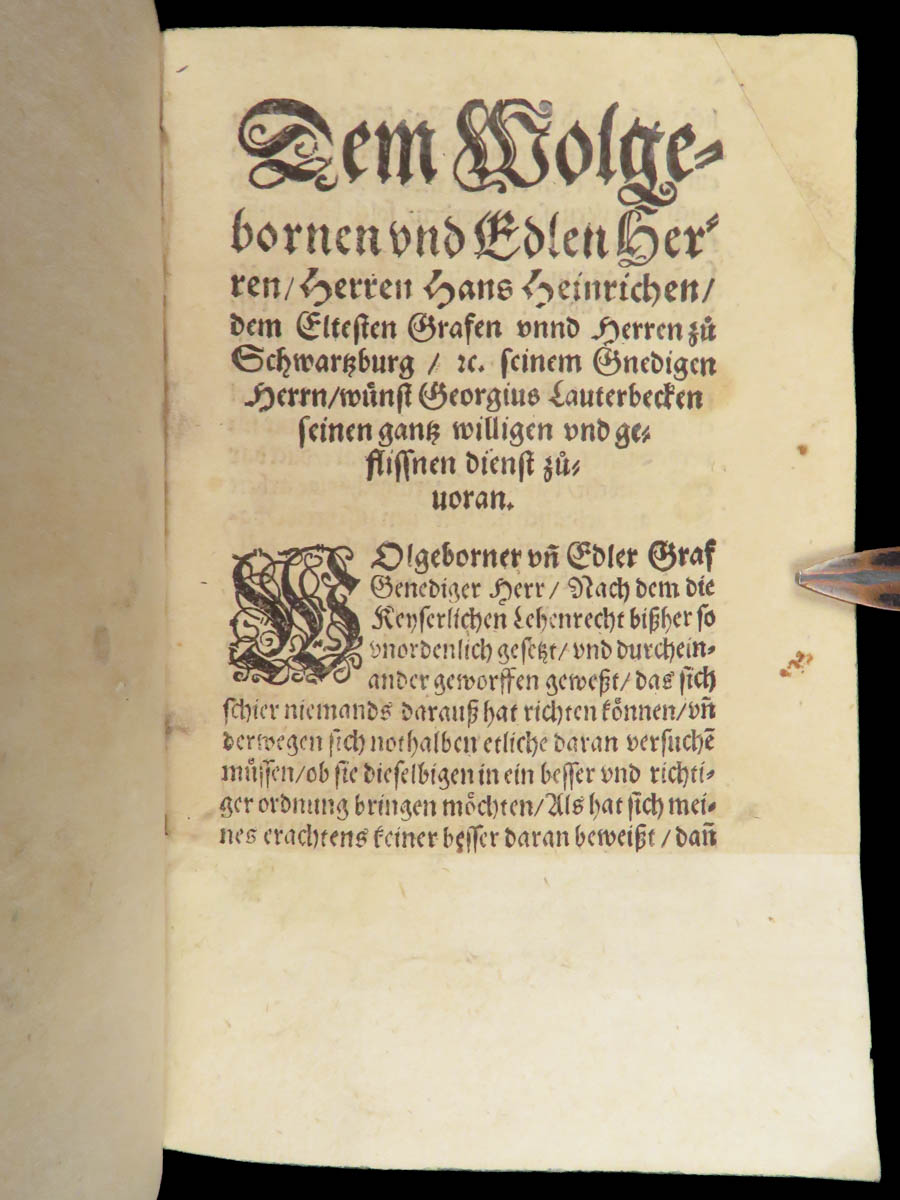 Dem Wolge⸗
bornen vnd Edlen Her⸗
ren/ Herren Hans Heinrichen/
dem Eltesten Grafen vnnd Herren zů
Schwartzburg / ꝛc. seinem Gnedigen
Herrn/wünst Georgius Lauterbecken
seinen gantz willigen vnd ge⸗
flissnen dienst zů⸗
uoran.
WOlgeborner vñ Edler Graf
Genediger Herr/ Nach dem die
Keyserlichen Lehenrecht bißher so
vnordenlich gesetzt/ vnd durchein⸗
ander geworffen geweßt/ das sich
schier niemands darauß hat richten können/vñ
derwegen sich nothalben etliche daran versuchẽ
müssen/ob sie dieselbigen in ein besser vnd richti⸗
ger ordnung bringen möchten/Als hat sich mei⸗
nes erachtens keiner besser daran beweißt / dañ